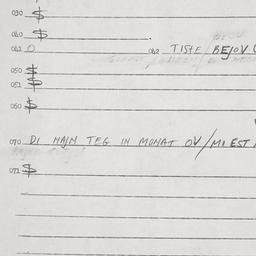 030 $
040 $
041 0 042 TISTE / BEJOV
050 $
051 $
060 $
070 DI MAJN TEG IN MONAT OV / MI EST
071 $